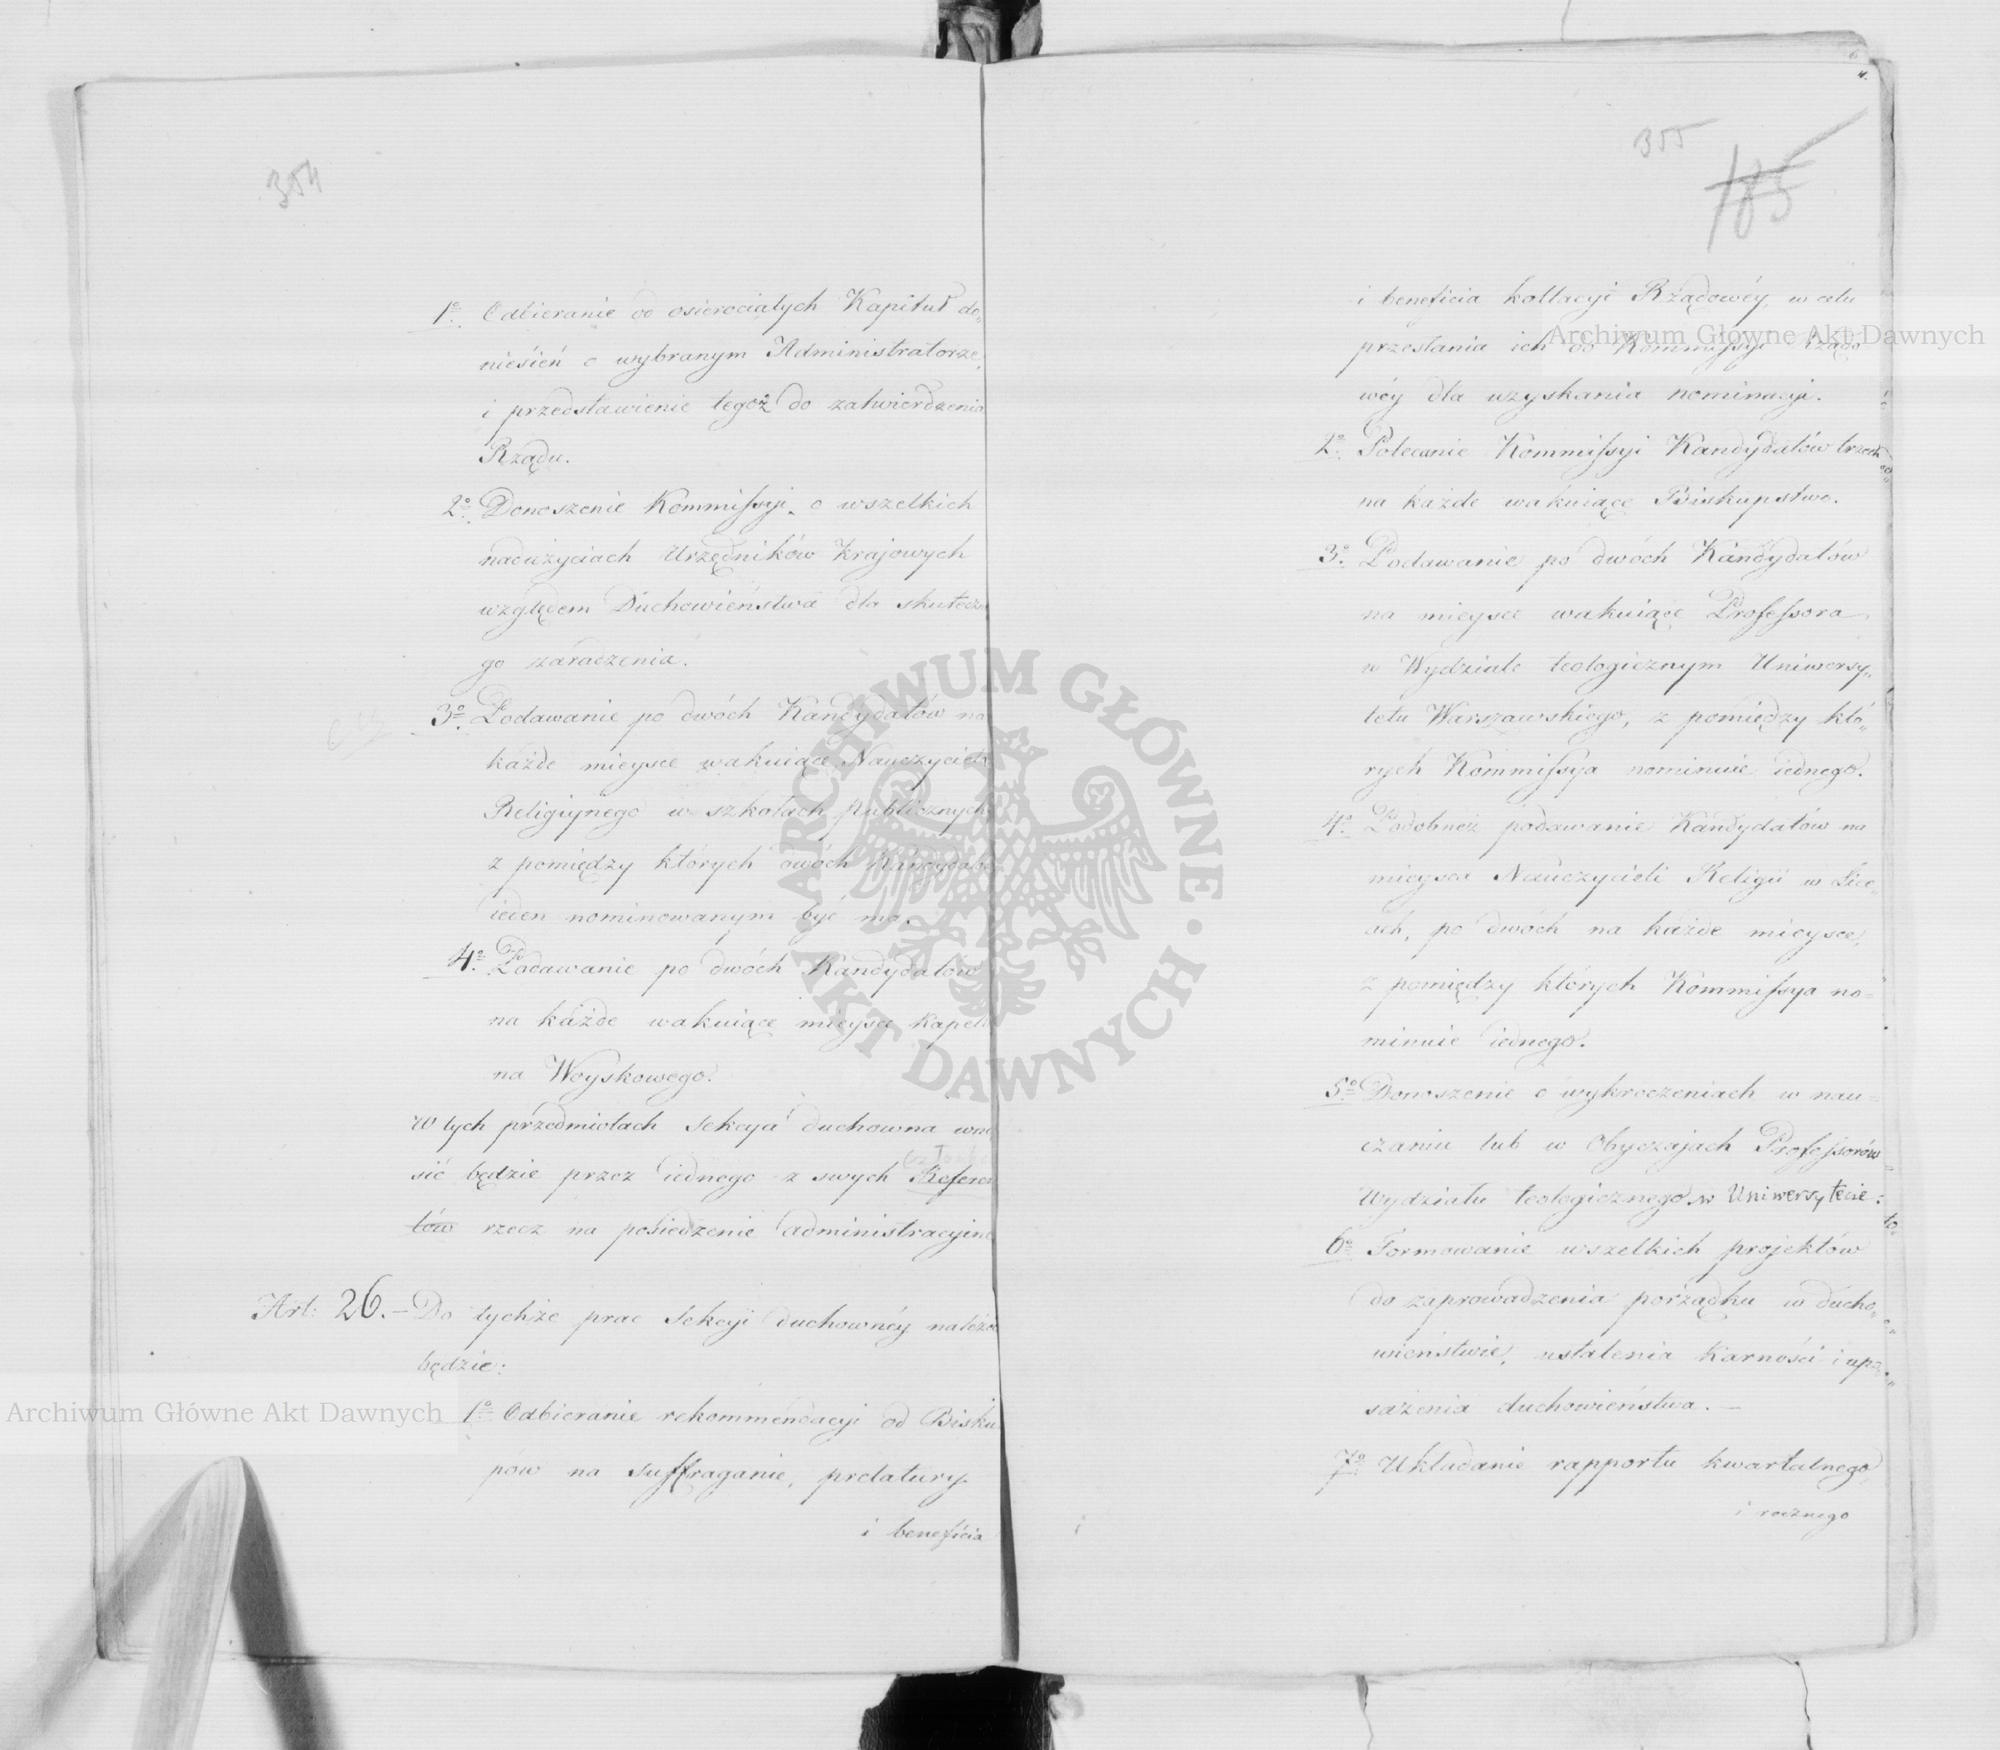 354
1º Odbieranie od osierociałych Kapituł do„
niesień o wybranym Administratorze,
i przedstawienie tegoż do zatwierdzenia
Rządu.
2º Donoszenie Kommissyi o wszelkich
nadużyciach Urzędników krajowych
względem Duchowieństwa dla skuteczne
go zaradzenia.
3º Podawanie po dwóch Kandydatów na
każde mieysce wakuiące Nauczyciela
Religiynego w szkołach publicznych
z pomiędzy których dwóch Kandydatów
ieden nominowanym być ma.
4º Podawanie po dwóch Kandydatów
na każde wakuiące mieysce Kapella
na Woyskowego.
W tych przedmiotach Sekcya duchowna wno
sić będzie przez iednego z swych Referen
tów rzecz na posiedzenie administracyine
Art: 26.– Do tychże prac Sekcyi duchownéy należéć
będzie:
1º Odbieranie rekommendacyi od Bisku
pów na suffraganie, prelatury
i beneficia
355
185
i beneficia kollacyi Rządowéy, w celu
przesłania ich do Kommissyi Rządo
wéy dla uzyskania nominacyi.
2º Polecanie Kommissyi Kandydatów trzech
na każde wakuiące Biskupstwo.
3º Podawanie po dwóch Kandydatów
na mieysce wakuiące Professora
w Wydziale teologicznym Uniwersy„
tetu Warszawskiego, z pomiędzy któ„
rych Kommissya nominuie iednego.
4º Podobneż podawanie Kandydatów na
mieysca Nauczycieli Religii w Lice„
ach, po dwóch na każde mieysce,
z pomiędzy których Kommissya no=
minuie iednego.
5º Donoszenie o wykroczeniach w nau=
czaniu lub w Obyczajach Professorów
Wydziału teologicznego w Uniwersytecie.
6º Formowanie wszelkich projektów
do zaprowadzenia porządku w ducho„
wieństwie, ustalenia Karności i upo
sażenia duchowieństwa.—
7º Układanie rapportu kwartalnego
i rocznego
Archiwum Główne Akt Dawnych
Archiwum Główne Akt Dawnych
ARCHIWUM GŁÓWNE · AKT DAWNYCH ·